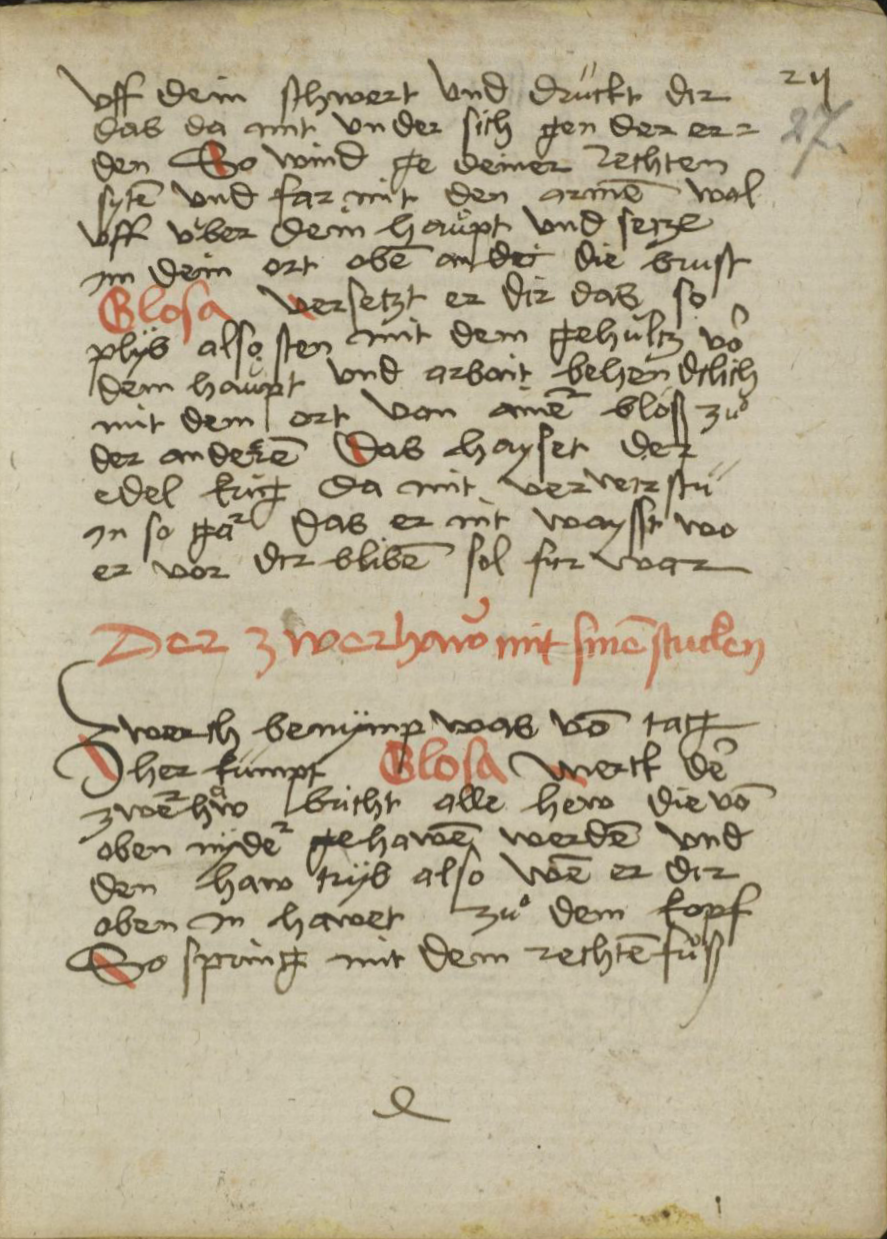 vff dein schwert vnd drückt dir
das da mit vnder sich gen der er=
den So wind ge deiner rechten
sytē vnd far mit den armē wol
vff über dein haupt vnd setze
im dein ort obē an die brust
Glosa versetzt er dir das so
plyb also sten mit dem gehültz vō
dem haupt vnd arbait behendclich
mit dem ort von ainer blöß zuͦ
der anderē Das hayset der
edel krieg da mit
in so gar das er nit waysst wo
er vor dir blibē sol fur war
Der zwerhaw mit sinē stucken
Zwerch benÿmp was vō tag
Dher kümpt Glosa merck der
zwerhaw bricht alle hew die vō
oben nÿder gehawē werdē vnd
den haw trÿb also wē er dir
oben in hawet zuͦ dem kopf
So spring mit dem rechtē fuͦß
27.